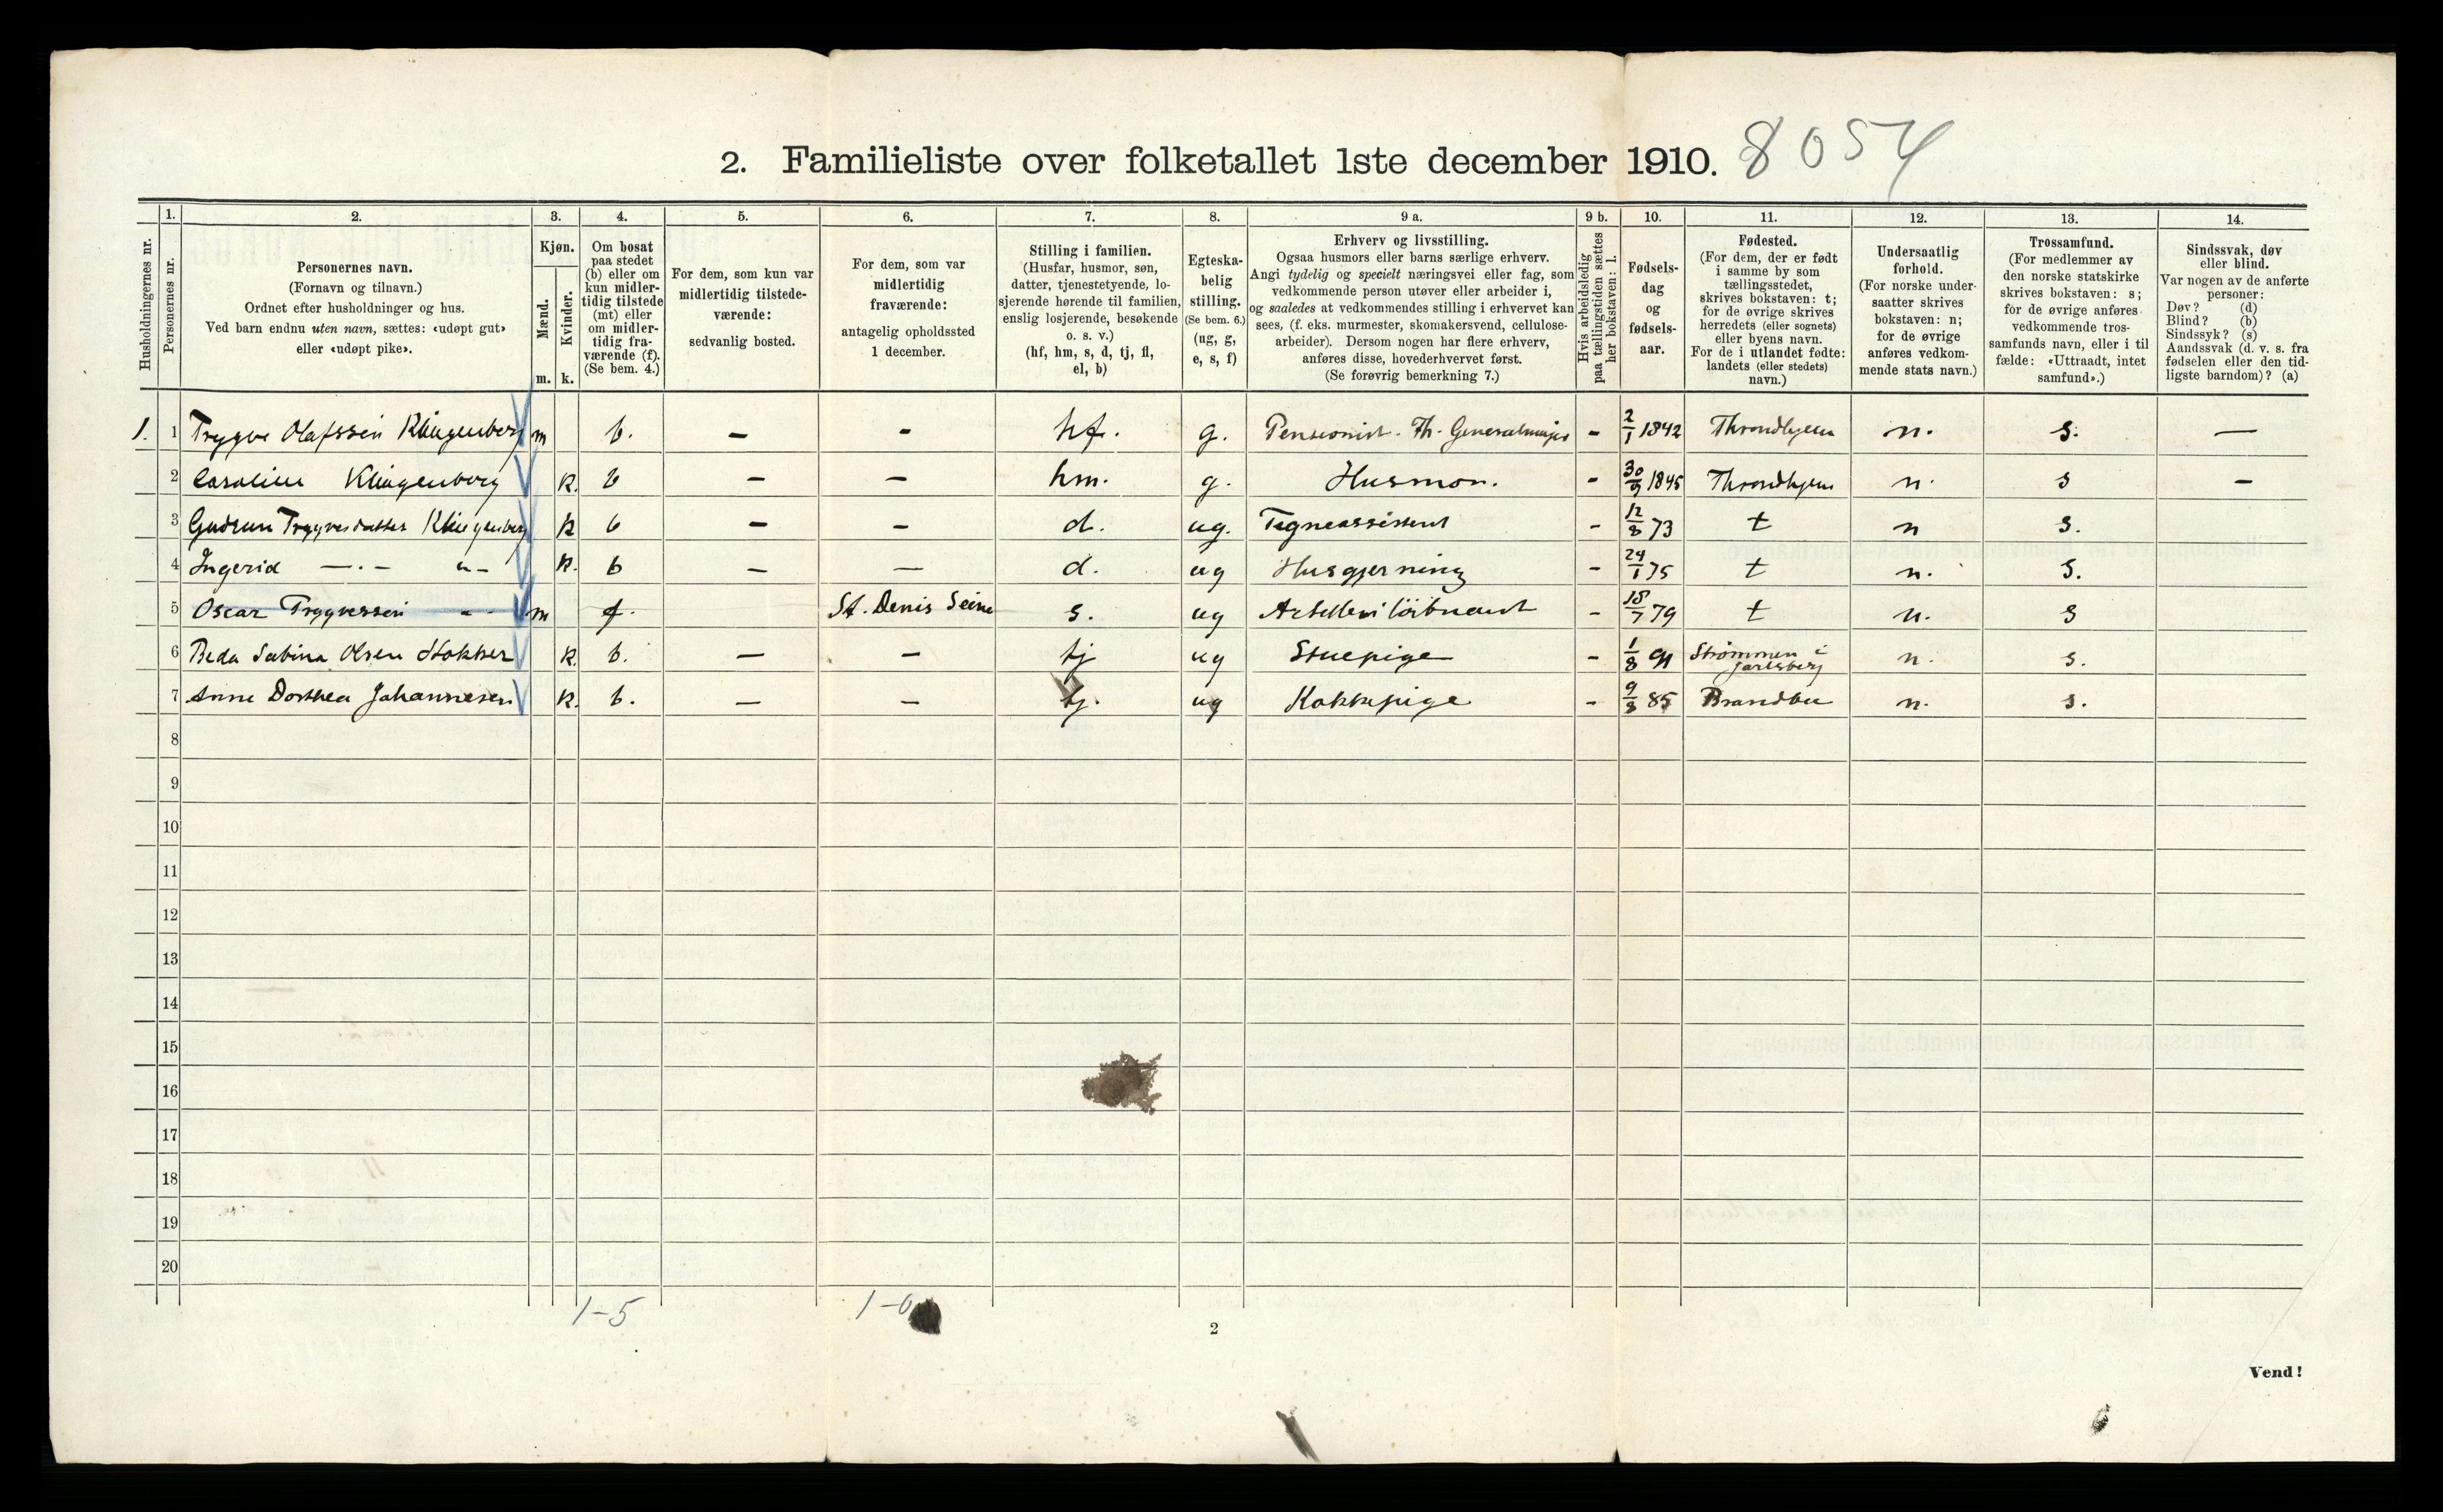 2. Familieliste over folketallet 1ste december 1910. 8054
Husholdningernes nr.
1. Personernes nr.
2. Personernes navn. (Fornavn og tilnavn.) Ordnet efter husholdninger og hus. Ved barn endnu uten navn, sættes: «udøpt gut» eller «udøpt pike».
3. Kjøn. Mænd. m. Kvinder. k.
4. Om bosat paa stedet (b) eller om kun midlertidig tilstede (mt) eller om midlertidig fraværende (f). (Se bem. 4.)
5. For dem, som kun var midlertidig tilstedeværende: sedvanlig bosted.
6. For dem, som var midlertidig fraværende: antagelig opholdssted 1 december.
7. Stilling i familien. (Husfar, husmor, søn, datter, tjenestetyende, losjerende hørende til familien, enslig losjerende, besøkende o. s. v.) (hf, hm, s, d, tj, fl, el, b)
8. Egteskabelig stilling. (Se bem. 6.) (ug, g, e, s, f)
9 a. Erhverv og livsstilling. Ogsaa husmors eller barns særlige erhverv. Angi tydelig og specielt næringsvei eller fag, som vedkommende person utøver eller arbeider i, og saaledes at vedkommendes stilling i erhvervet kan sees, (f. eks. murmester, skomakersvend, cellulosearbeider). Dersom nogen har flere erhverv, anføres disse, hovederhvervet først. (Se forøvrig bemerkning 7.)
9 b. Hvis arbeidsledig paa tællingstiden sættes her bokstaven: l.
10. Fødselsdag og fødselsaar.
11. Fødested. (For dem, der er født i samme by som tællingsstedet, skrives bokstaven: t; for de øvrige skrives herredets (eller sognets) eller byens navn. For de i utlandet fødte: landets (eller stedets) navn.)
12. Undersaatlig forhold. (For norske undersaatter skrives bokstaven: n; for de øvrige anføres vedkommende stats navn.)
13. Trossamfund. (For medlemmer av den norske statskirke skrives bokstaven: s; for de øvrige anføres vedkommende trossamfunds navn, eller i tilfælde: «Uttraadt, intet samfund».)
14. Sindssvak, døv eller blind. Var nogen av de anførte personer: Døv? (d) Blind? (b) Sindssyk? (s) Aandssvak (d. v. s. fra fødselen eller den tidligste barndom)? (a)
1. 1 Trygve Olafssön Klingenberg m b. - - hf. g. Pensionist. Th. Generalmajor - 2/1 1842 Throndhjem n. s. -
2 Caroline Klingenberg k. b - - hm. g. Husmor. - 30/9 1845 Throndhjem n. s -
3 Gudrun Trygvesdatter Klingenberg k b - - d. ug. Tegneassistent - 12/8 73 t n s.
4 Ingerid -.- „- k. b - - d. ug Husgjerning - 24/1 75 t n. s.
5 Oscar Trygvessön - - m f. St. Denis Seine s. ug Artilleri löitnant - 18/7 79 t n. s
6 Beda Sabina Olsen Stokker k. b. - - tj ug Stuepige - 1/8 91 Strömmen i Jarlsberg n. s.
7 Anne Dorthea Johannesen k. b. - - tj. ug Kokkepige - 9/3 85 Brandbu n. s.
8
9
10
11
12
13
14
15
16
17
18
19
20
1-5 1-0
2
Vend!